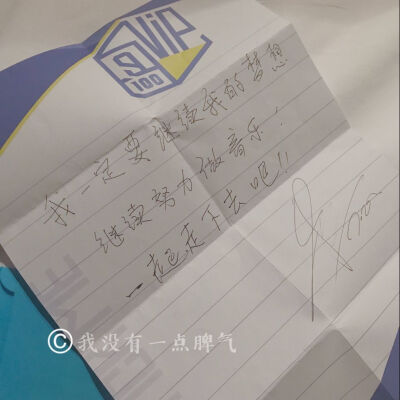 SVIP
100
我一定要继续我的梦想
继续努力做音乐!
一起走下去吧!!
©我没有一点脾气